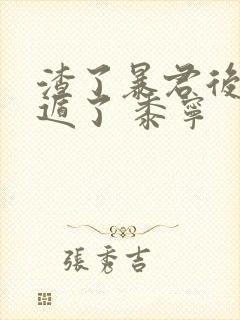 渣了暴君後
遁了 黍寧
張秀吉